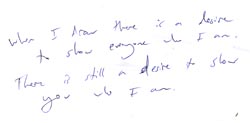 When I draw there is a desire
to show everyone who I am.
There is still a desire to show
you who I am.